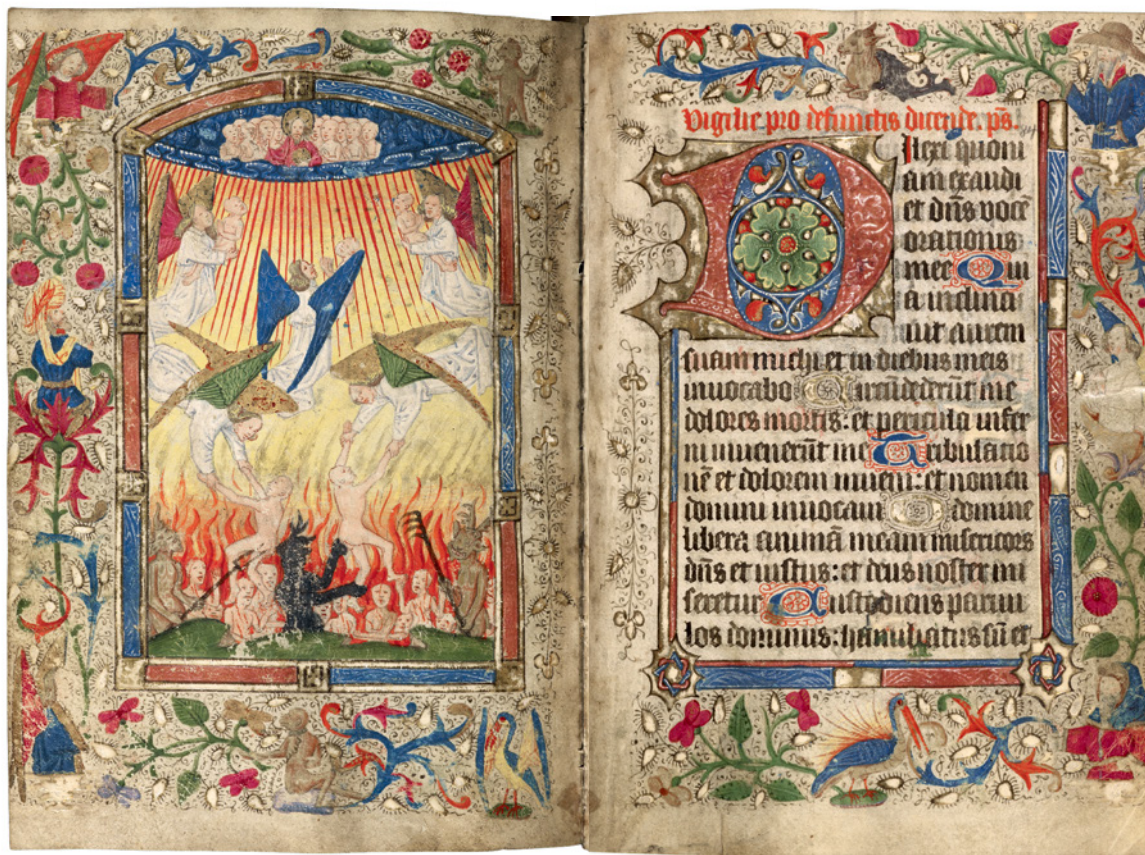 Vigilie pro defunctis dicende. ps̄.
Dilexi quoni
am exaudi
et dn̄s vocē
orationis
mee Qui
a inclina
uit aurem
suam michi et in diebus meis
inuocabo Circūdederūt me
dolores mortis: et pericula infer
ni inuenerūt me Tribulatio
nē et dolorem inueni: et nomen
domini inuocaui O domine
libera animā meam misericors
dn̄s et iustus: et deus noster mi
seretur Custodiens paruu
los dominus: humiliatus sū et